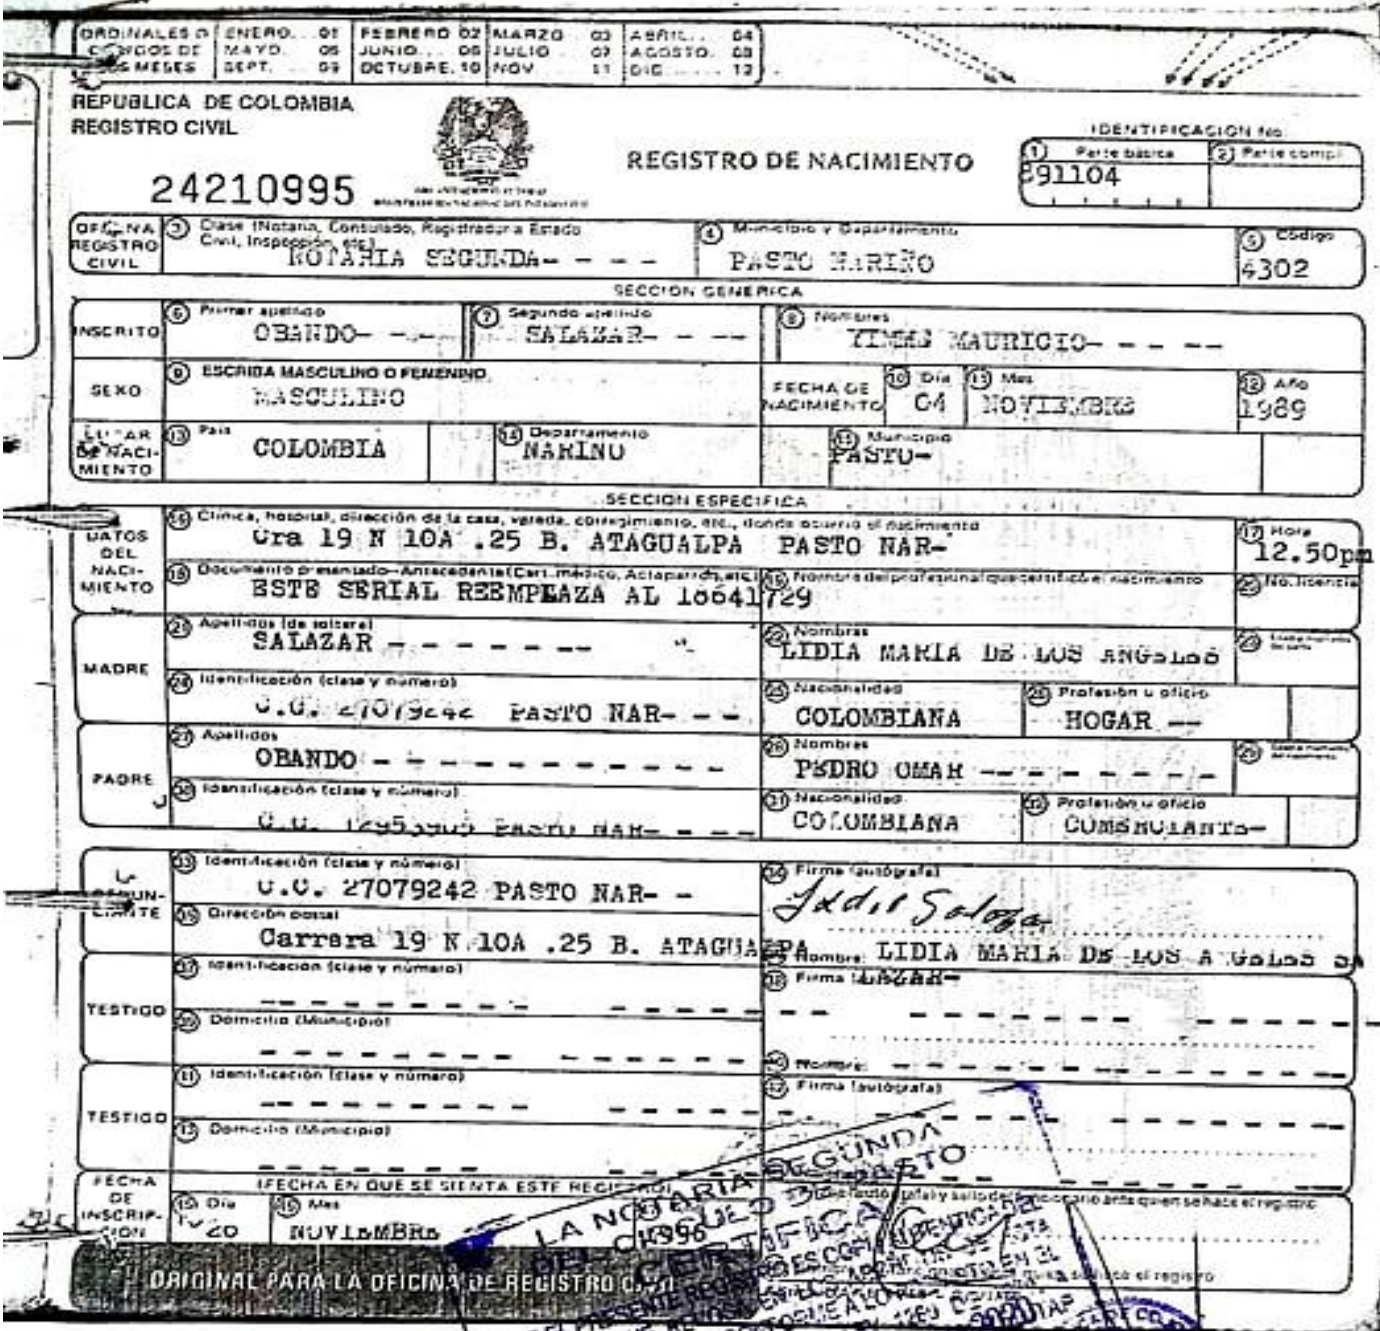 ORDINALES O ENERO... 01 FEBRERO 02 MARZO 03 ABRIL... 04
CODIGOS DE MAYO. 05 JUNIO... 06 JULIO 07 AGOSTO. 08
MESES SEPT. ... 09 OCTUBRE. 10 NOV. 11 DIC....... 12
REPUBLICA DE COLOMBIA
REGISTRO CIVIL
24210995
REGISTRO DE NACIMIENTO
IDENTIFICACION No.
1 Parte básica 2 Parte compl.
891104
OFICINA REGISTRO CIVIL
3 Clase (Notaria, Consulado, Registraduria Estado
Civil, Inspección, etc.)
NOTARIA SEGUNDA- - - -
4 Municipio y Departamento
PASTO NARIÑO
5 Código
4302
SECCION GENERICA
INSCRITO
6 Primer apellido
OBANDO- - -
7 Segundo apellido
SALAZAR- - --
8 Nombres
MAURICIO- - - --
SEXO
9 ESCRIBA MASCULINO O FEMENINO
MASCULINO
FECHA DE NACIMIENTO
10 Día
04
11 Mes
NOVIEMBRE
12 Año
1989
LUGAR DE NACI-MIENTO
13 País
COLOMBIA
14 Departamento
NARINO
15 Municipio
PASTO-
SECCION ESPECIFICA
DATOS DEL NACI-MIENTO
16 Clínica, hospital, dirección de la casa, vereda, corregimiento, etc., donde ocurrió el nacimiento
Cra 19 N 10A .25 B. ATAGUALPA PASTO NAR-
17 Hora
12.50pm
18 Documento presentado-Antecedente (Cert. médico, Acta parroq. etc.)
ESTE SERIAL REEMPLAZA AL 10641729
19 Nombre del profesional que certificó el nacimiento
20 No. licencia
MADRE
21 Apellidos (de soltera)
SALAZAR - - - - - - -
22 Nombres
LIDIA MARIA DE LOS ANGELES
23
24 Identificación (clase y número)
C.C. 27079242 PASTO NAR- - -
25 Nacionalidad
COLOMBIANA
26 Profesión u oficio
HOGAR --
PADRE
27 Apellidos
OBANDO - - - - - - - - - - -
28 Nombres
PEDRO OMAR -- - - - - - -
29
30 Identificación (clase y número)
C.C. 12953905 PASTO NAR- - - -
31 Nacionalidad
COLOMBIANA
32 Profesión u oficio
COMERCIANTE-
DENUN-CIANTE
33 Identificación (clase y número)
C.C. 27079242 PASTO NAR- -
34 Firma (autógrafa)
Lidia Salazar
35 Dirección postal
Carrera 19 N 10A .25 B. ATAGUALPA
Nombre: LIDIA MARIA DE LOS ANGELES SA
LAZAR-
TESTIGO
37 Identificación (clase y número)
38 Firma
39 Domicilio (Municipio)
40 Nombre:
TESTIGO
41 Identificación (clase y número)
42 Firma (autógrafa)
43 Domicilio (Municipio)
FECHA DE INSCRIP-CION
(FECHA EN QUE SE SIENTA ESTE REGISTRO)
45 Día
20
46 Mes
NOVIEMBRE
1996
autógrafa) y sello del funcionario ante quien se hace el registro
ORIGINAL PARA LA OFICINA DE REGISTRO CIVIL
LA NOTARIA SEGUNDA
DEL CIRCULO DE PASTO
CERTIFICA